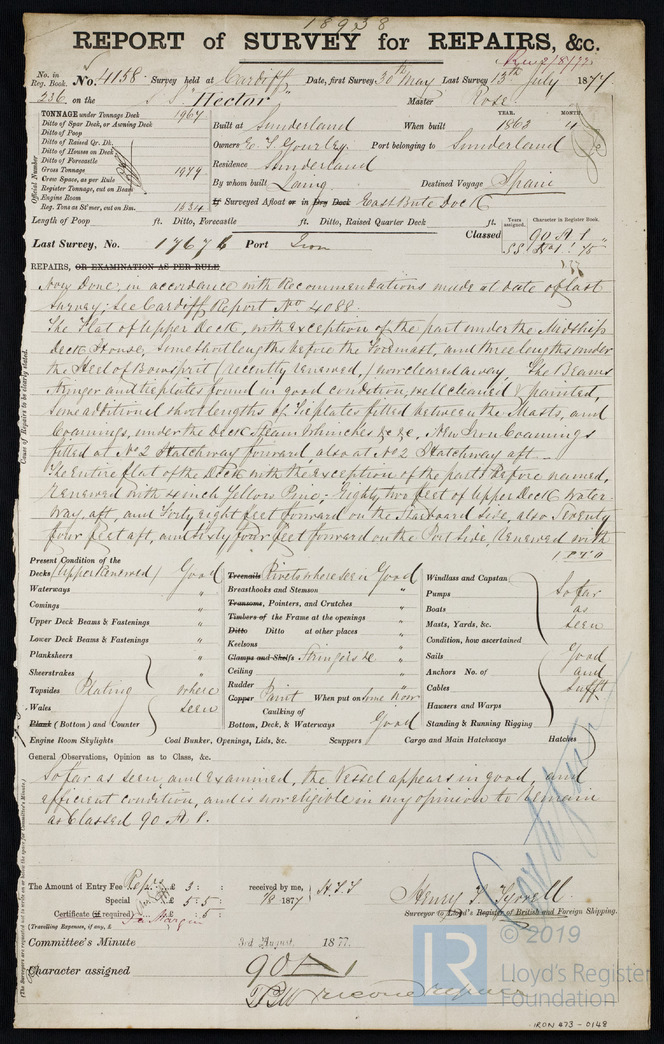 18938
REPORT of SURVEY for REPAIRS, &c.
No. in Reg. Book. No. 4158 Survey held at Cardiff Date, first Survey 30th May Last Survey 13th July 1877
236 on the S.S. "Hector" Master Rose
TONNAGE under Tonnage Deck 1967
Ditto of Spar Deck, or Awning Deck
Ditto of Poop
Ditto of Raised Qr. Dk.
Ditto of Houses on Deck
Ditto of Forecastle
Gross Tonnage 1979
Crew Space, as per Rule
Register Tonnage, cut on Beam
Engine Room
Reg. Tons as St'mer, cut on Bm. 1634
Official Number
YEAR. MONTH
Built at Sunderland When built 1862 11
Owners Port belonging to Sunderland
Residence Sunderland
By whom built Laing Destined Voyage Spain
If Surveyed Afloat or in Dry Dock East Bute Dock
Length of Poop ft. Ditto, Forecastle ft. Ditto, Raised Quarter Deck ft.
Years assigned. Character in Register Book.
Classed 90 A 1
Last Survey, No. 17676 Port Iron
REPAIRS, OR EXAMINATION AS PER RULE
Cause of Repairs to be clearly stated.
Now Done; in accordance with Recommendations made at date of last
Survey; See Cardiff Report No. 4088.
The Flat of Upper Deck, with exception of the part under the Midship
Deck House, some short lengths before the Foremast, and three lengths under
the Heel of Bowsprit (recently renewed,) now cleared away. The Beams
Stringer and tieplates found in good condition, well cleaned & painted,
Some additional short lengths of Tieplates fitted between the Masts, and
Coamings, under the Deck Steam Whinches &c &c. New Iron Coamings
fitted at No 2 Hatchway forward, also at No 2 Hatchway aft.
The Entire flat of the Deck with the exception of the parts before named,
renewed with 4 inch Yellow Pine; Eighty two feet of Upper Deck Water-
way, aft, and Forty eight feet forward on the Starboard Side, also Seventy
four feet aft, and Sixty four feet forward on the Port Side, renewed with
P.T.O
Present Condition of the
Decks (Upper Renewed) Good
Waterways "
Comings "
Upper Deck Beams & Fastenings "
Lower Deck Beams & Fastenings "
Planksheers
Sheerstrakes
Topsides Plating where
Wales seen
Plank (Bottom) and Counter
Engine Room Skylights Coal Bunker, Openings, Lids, &c. Scuppers Cargo and Main Hatchways Hatches
Treenails Rivets where seen Good
Breasthooks and Stemson "
Transoms, Pointers, and Crutches "
Timbers of the Frame at the openings "
Ditto Ditto at other places "
Keelsons "
Clamps and Shelfs Stringers &c "
Ceiling "
Rudder "
Copper Paint When put on some Now
Caulking of
Bottom, Deck, & Waterways Good
Windlass and Capstan
Pumps So far
Boats as
Masts, Yards, &c. seen
Condition, how ascertained
Sails Good
Anchors No. of and
Cables Sufft
Hawsers and Warps
Standing & Running Rigging
General Observations, Opinion as to Class, &c.
So far as seen, and examined, the Vessel appears in good, and
efficient condition, and is now eligible in my opinion to remain
as Classed 90 A 1.
The Amount of Entry Fee £ 3 : received by me, H.T.T
Special £ 5 : 5 1/8 1877
Certificate (if required) £ : 5 :
(Travelling Expenses, if any, £
Henry T. Tyrrell
Surveyor to Lloyd's Register of British and Foreign Shipping.
Committee's Minute 3rd August 1877
Character assigned 90 A 1
© 2019
LR
Lloyd's Register
Foundation
IRON 673 - 0148